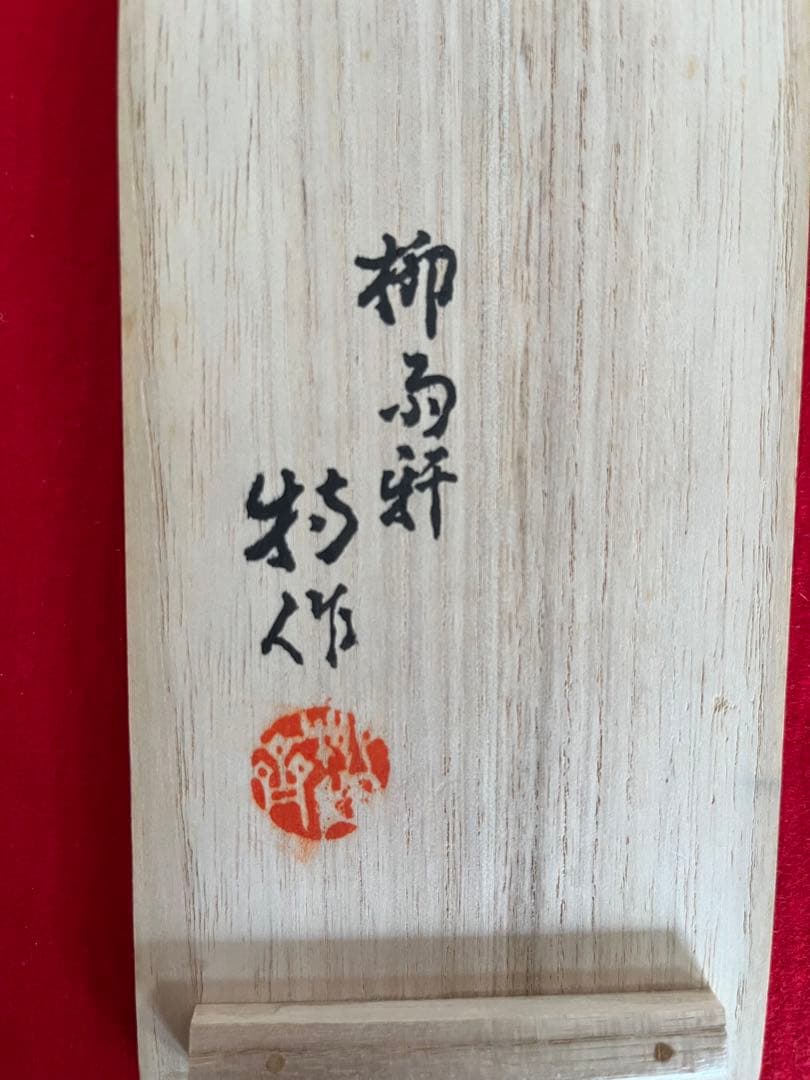 柳雨軒
特作